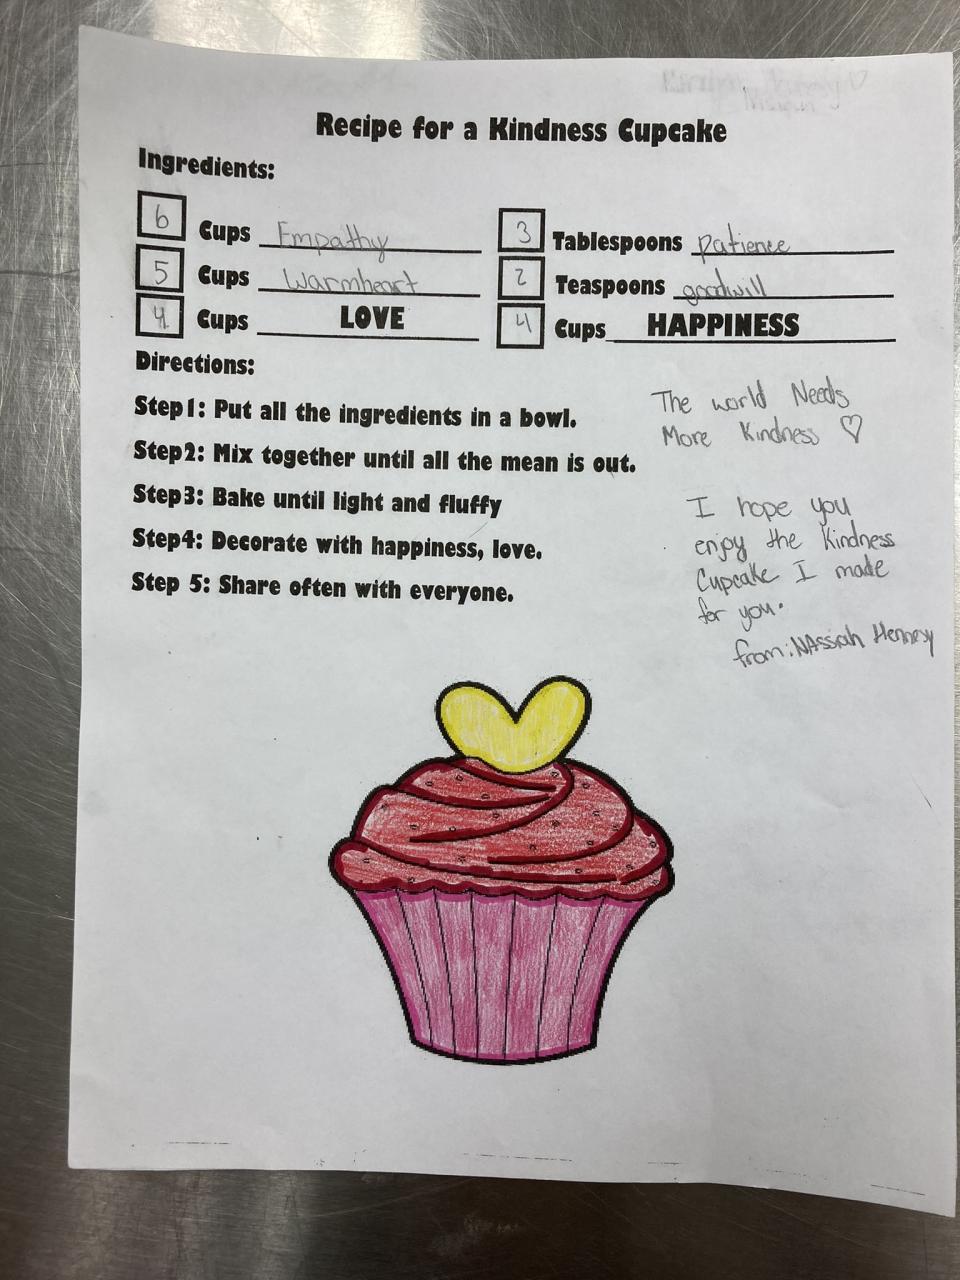 Recipe for a Kindness Cupcake
Ingredients:
6 Cups Empathy
3 Tablespoons Patience
5 Cups Warmheart
2 Teaspoons goodwill
4 Cups LOVE
4 Cups HAPPINESS
Directions:
Step1: Put all the ingredients in a bowl.
Step2: Mix together until all the mean is out.
Step3: Bake until light and fluffy
Step4: Decorate with happiness, love.
Step 5: Share often with everyone.
The world Needs
More Kindness ♡
I hope you
enjoy the Kindness
Cupcake I made
for you.
from: NAssiah Hennesy